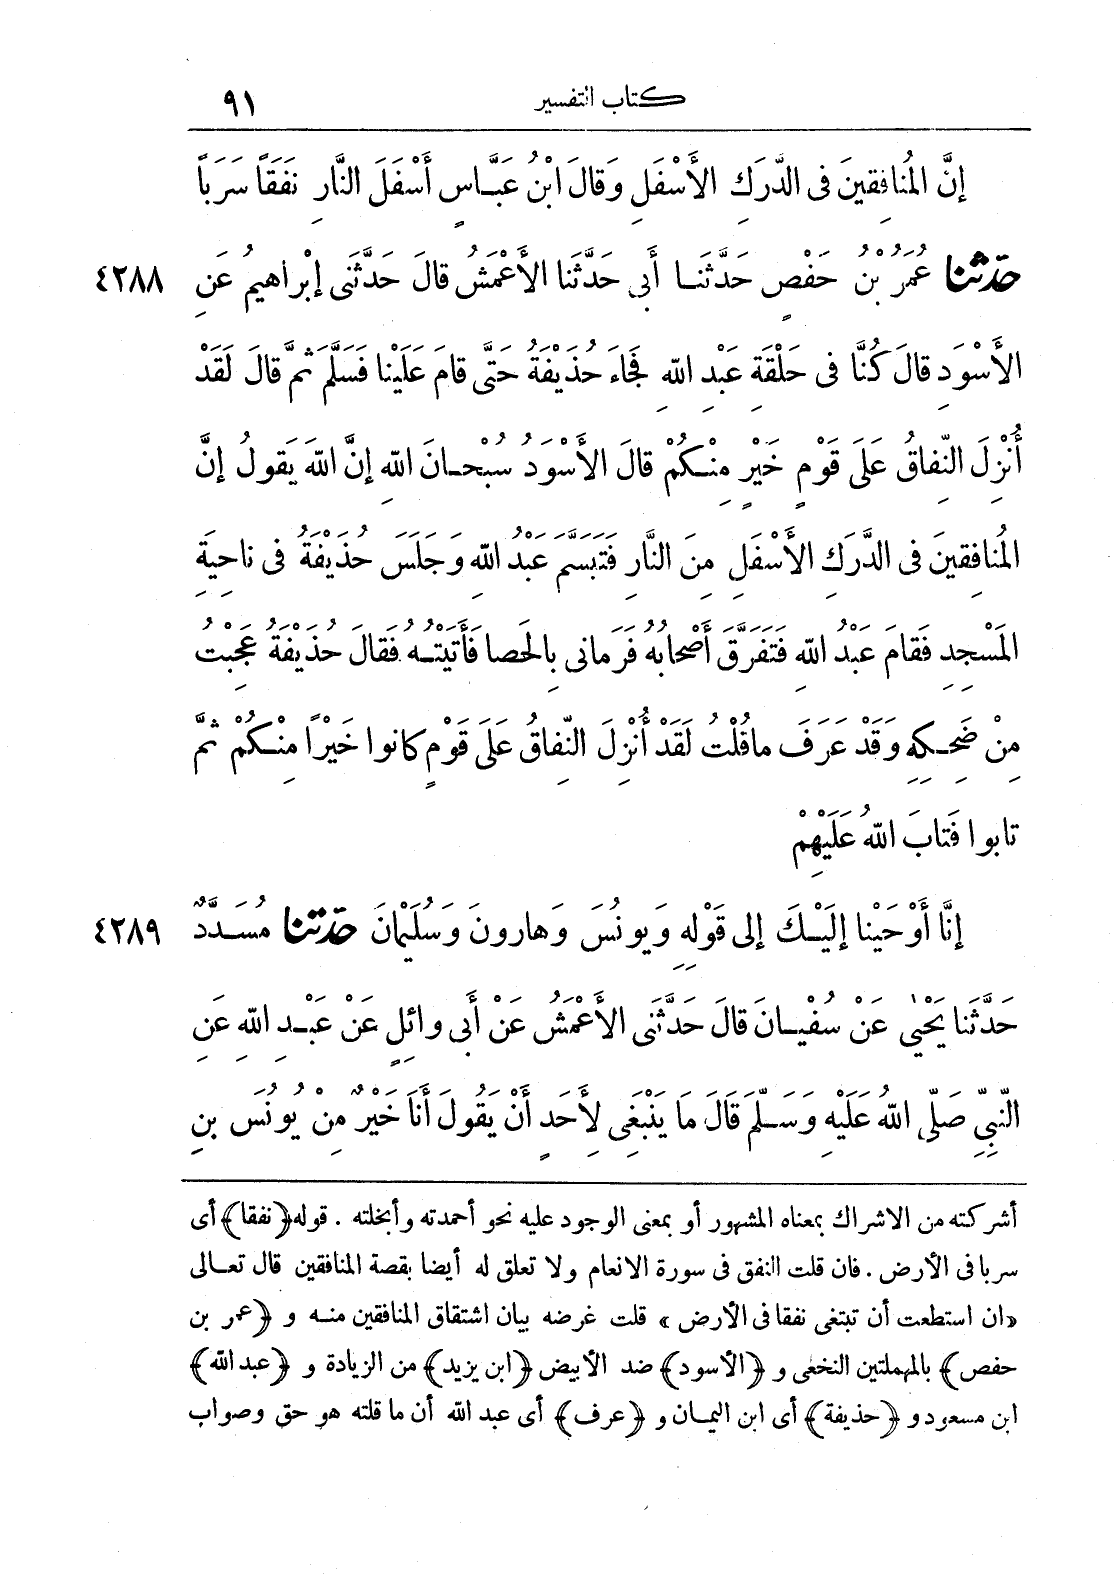 كتاب التفسير ٩١
إِنَّ الْمُنافِقِينَ فى الدَّرَكِ الأَسْفَلِ وَقالَ ابْنُ عَبَّاسٍ أَسْفَلَ النَّارِ نَفَقًا سَرَبًا
حدثنا عُمَرُ بْنُ حَفْصٍ حَدَّثَنا أَبِى حَدَّثَنا الأَعْمَشُ قالَ حَدَّثَنِى إِبْراهِيمُ عَنِ ٤٢٨٨
الأَسْوَدِ قالَ كُنَّا فى حَلْقَةِ عَبْدِ اللهِ فَجاءَ حُذَيْفَةُ حَتَّى قامَ عَلَيْنا فَسَلَّمَ ثُمَّ قالَ لَقَدْ
أُنْزِلَ النِّفاقُ عَلَى قَوْمٍ خَيْرٍ مِنْكُمْ قالَ الأَسْوَدُ سُبْحانَ اللهِ إِنَّ اللهَ يَقولُ إِنَّ
الْمُنافِقِينَ فى الدَّرَكِ الأَسْفَلِ مِنَ النَّارِ فَتَبَسَّمَ عَبْدُ اللهِ وَجَلَسَ حُذَيْفَةُ فى ناحِيَةِ
الْمَسْجِدِ فَقامَ عَبْدُ اللهِ فَتَفَرَّقَ أَصْحابُهُ فَرَمانِى بِالْحَصا فَأَتَيْتُهُ فَقالَ حُذَيْفَةُ عَجِبْتُ
مِنْ ضَحِكِهِ وَقَدْ عَرَفَ ماقُلْتُ لَقَدْ أُنْزِلَ النِّفاقُ عَلَى قَوْمٍ كانوا خَيْرًا مِنْكُمْ ثُمَّ
تابوا فَتابَ اللهُ عَلَيْهِمْ
إِنَّا أَوْحَيْنا إِلَيْكَ إِلى قَوْلِهِ وَيونُسَ وَهارونَ وَسُلَيْمانَ حدثنا مُسَدَّدٌ ٤٢٨٩
حَدَّثَنا يَحْيى عَنْ سُفْيانَ قالَ حَدَّثَنِى الأَعْمَشُ عَنْ أَبِى وائِلٍ عَنْ عَبْدِ اللهِ عَنِ
النَّبِيِّ صَلَّى اللهُ عَلَيْهِ وَسَلَّمَ قالَ مَا يَنْبَغِى لِأَحَدٍ أَنْ يَقُولَ أَنَا خَيْرٌ مِنْ يُونُسَ بنِ
أشركته من الاشراك بمعناه المشهور أو بمعنى الوجود عليه نحو أحمدته وأبخلته . قوله ﴿نفقا﴾ أى
سربا فى الأرض . فان قلت النفق فى سورة الانعام ولا تعلق له أيضا بقصة المنافقين قال تعالى
«ان استطعت أن تبتغى نفقا فى الأرض» قلت غرضه بيان اشتقاق المنافقين منه و ﴿عمر بن
حفص﴾ بالمهملتين النخعى و ﴿الأسود﴾ ضد الأبيض ﴿ابن يزيد﴾ من الزيادة و ﴿عبد الله﴾
ابن مسعود و ﴿حذيفة﴾ أى ابن اليمان و ﴿عرف﴾ أى عبد الله أن ما قلته هو حق وصواب